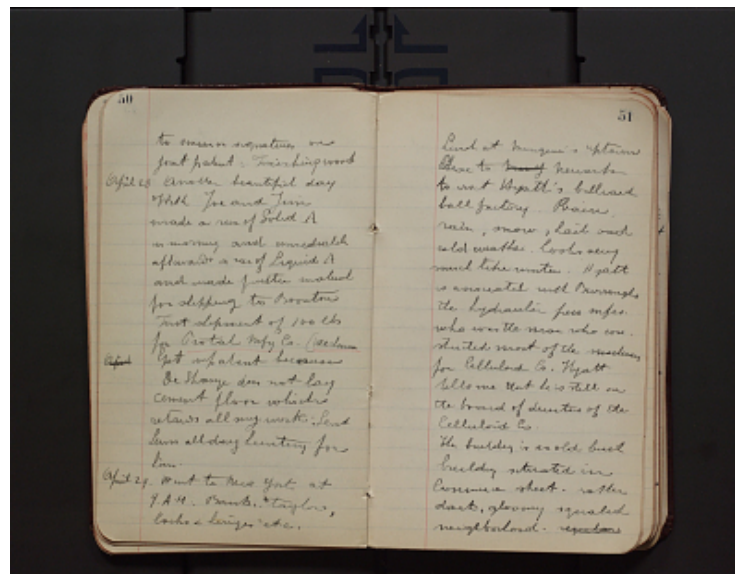 50
to our signatures on
joint patent: Finishing wood
April 28 Another beautiful day
Joe and Jim
made a run of Solid A
in morning and immediately
afterwards a run of Liquid A
and made further material
for shipping to Boonton
First shipment of 100 lbs
for Protal Mfg Co.
got impatient because
De Shange does not lay
cement floor which
retards all my work. Send
him all day hunting for
him.
April 29. Went to New York at
9 A.M. Bank, tailor,
Lochs & Lueger etc.
51
Lunch at uptown
Drive to Newark
to visit Hyatt's billiard
ball factory. Rain,
rain, snow, hail and
cold weather. Looks very
much like winter. Hyatt
is associated with Burroughs
the hydraulic press mfrs.
who was the man who con-
structed most of the machinery
for Celluloid Co. Hyatt
tells me that he is still on
the board of directors of the
Celluloid Co.
The building is an old brick
building situated in
Commerce street. rather
dark, gloomy squalid
neighborhood.